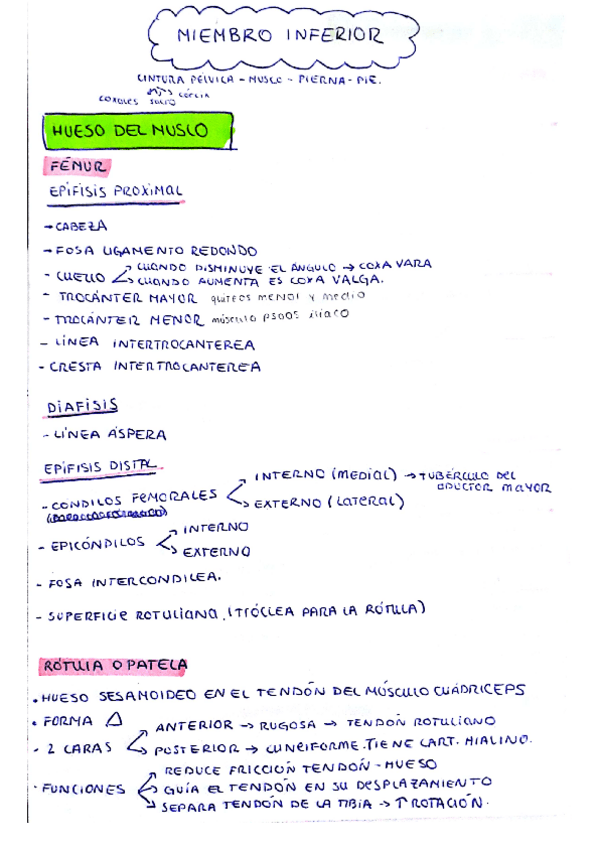 MIEMBRO INFERIOR
CINTURA PÉLVICA - MUSLO - PIERNA - PIE.
COXALES SACRO CÓCCIX
HUESO DEL MUSLO
FÉMUR
EPÍFISIS PROXIMAL
→ CABEZA
→ FOSA LIGAMENTO REDONDO
- CUELLO CUANDO DISMINUYE EL ÁNGULO → COXA VARA
CUANDO AUMENTA ES COXA VALGA.
- TROCÁNTER MAYOR glúteos menor y medio
- TROCÁNTER MENOR músculo psoas ilíaco
- LÍNEA INTERTROCANTEREA
- CRESTA INTERTROCANTEREA
DIAFISIS
- LÍNEA ÁSPERA
EPÍFISIS DISTAL
- CONDILOS FEMORALES INTERNO (MEDIAL) → TUBÉRCULO DEL ADUCTOR MAYOR
EXTERNO (LATERAL)
- EPICÓNDILOS INTERNO
EXTERNO
- FOSA INTERCONDILEA.
- SUPERFICIE ROTULIANA (TRÓCLEA PARA LA RÓTULA)
RÓTULA O PATELA
• HUESO SESAMOIDEO EN EL TENDÓN DEL MÚSCULO CUÁDRICEPS
• FORMA △
- 2 CARAS ANTERIOR → RUGOSA → TENDÓN ROTULIANO
POSTERIOR → CUNEIFORME. TIENE CART. HIALINO.
• FUNCIONES REDUCE FRICCIÓN TENDÓN - HUESO
GUÍA EL TENDÓN EN SU DESPLAZAMIENTO
SEPARA TENDÓN DE LA TIBIA → ↑ ROTACIÓN.